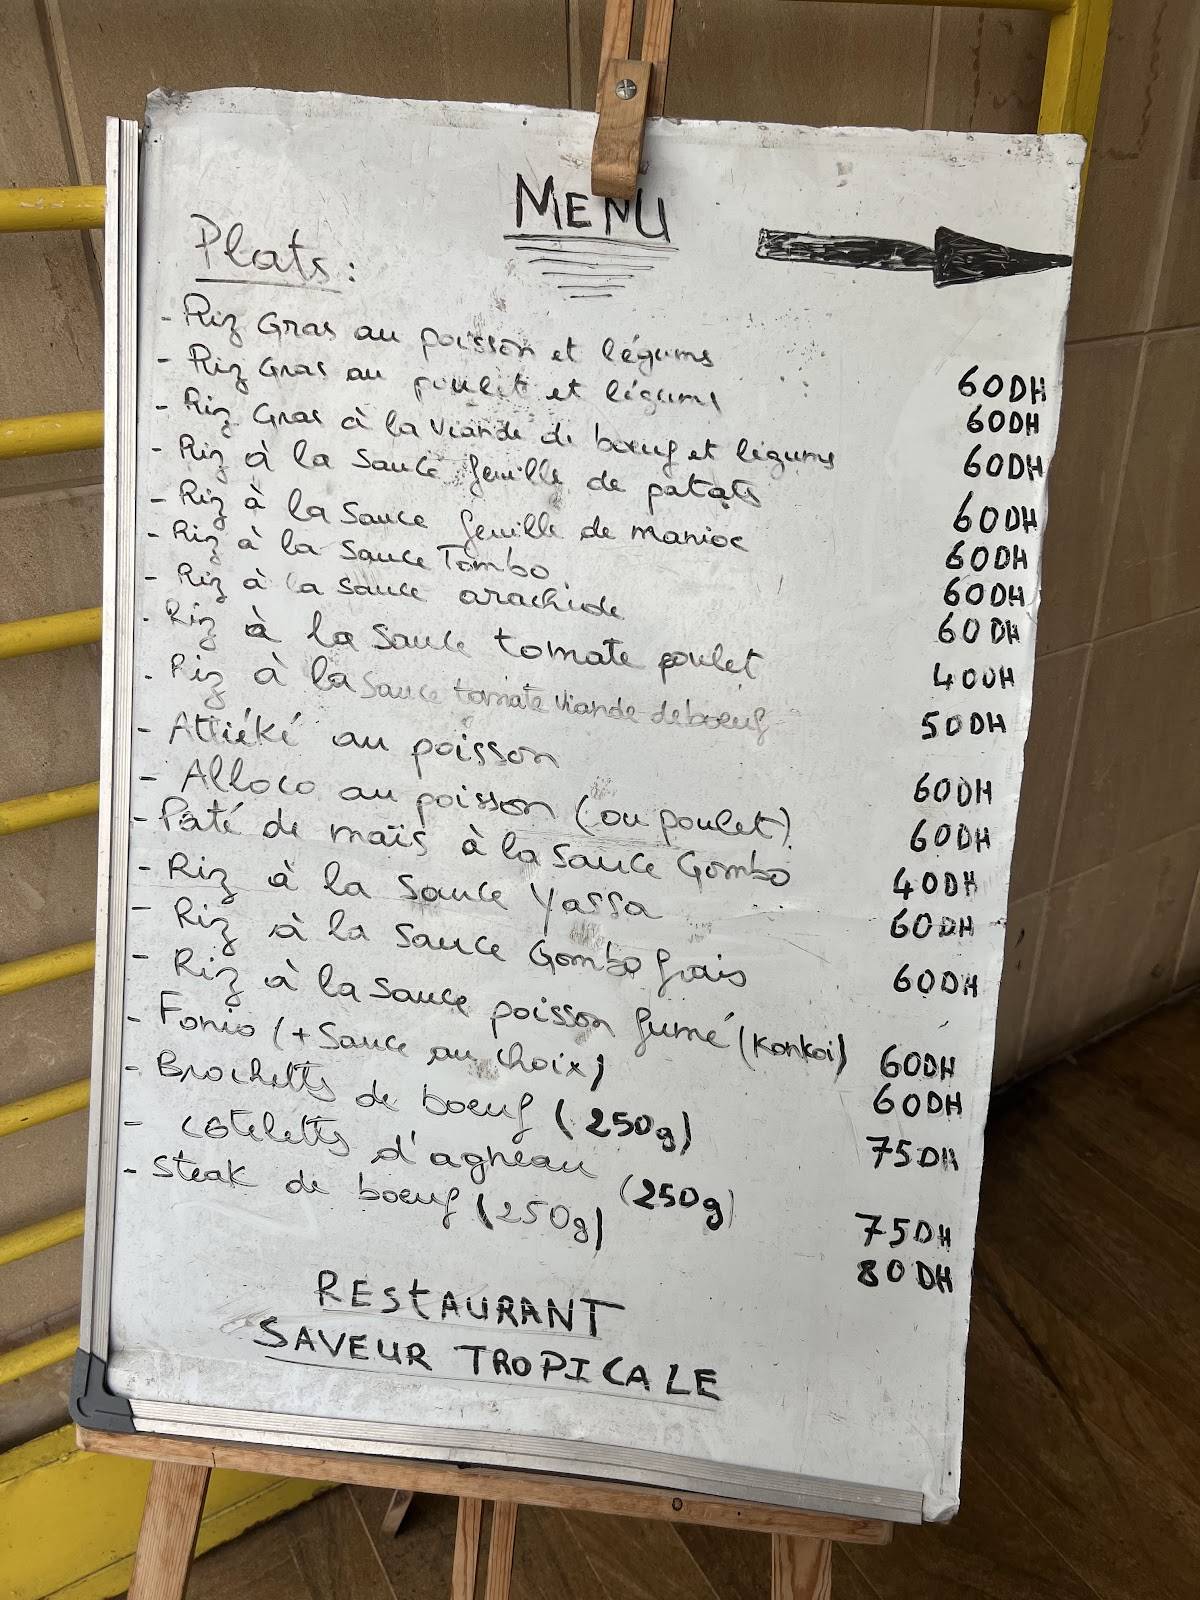 MENU
Plats:
- Riz Gras au poisson et légums 60DH
- Riz Gras au poulet et légums 60DH
- Riz Gras à la viande de boeuf et légums 60DH
- Riz à la sauce feuille de patats 60DH
- Riz à la sauce feuille de manioc 60DH
- Riz à la sauce Tombo 60DH
- Riz à la sauce arachide 60DH
- Riz à la sauce tomate poulet 40DH
- Riz à la sauce tomate viande de boeuf 50DH
- Attiéké au poisson 60DH
- Alloco au poisson (ou poulet) 60DH
- Pâté de maïs à la sauce Gombo 40DH
- Riz à la sauce Yassa 60DH
- Riz à la sauce Gombo frais 60DH
- Riz à la sauce poisson fumé (Konkoi) 60DH
- Fonio (+ sauce au choix) 60DH
- Brochetts de boeuf (250g) 75DH
- coteletts d'agneau (250g) 75DH
- Steak de boeuf (250g) 80DH
RESTAURANT
SAVEUR TROPICALE